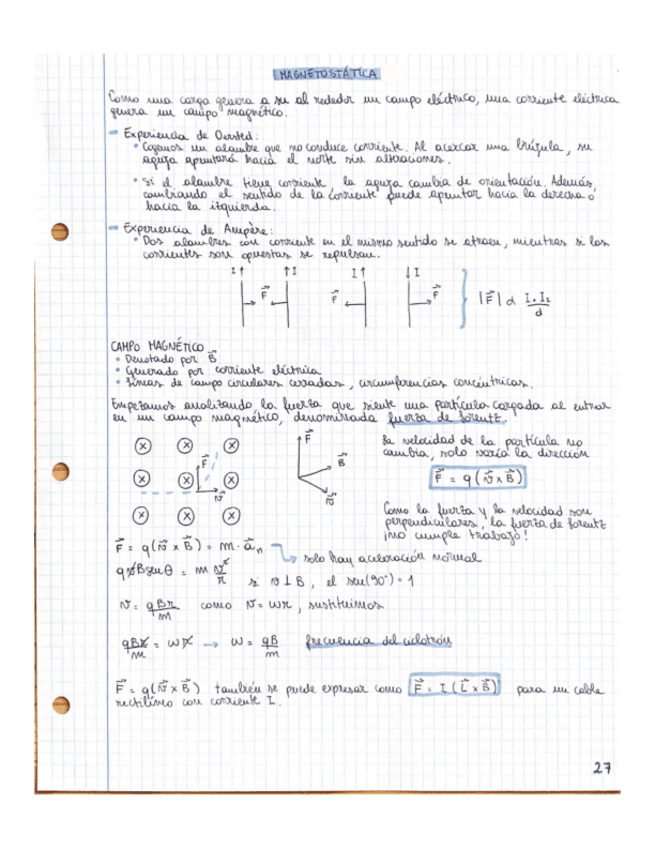 MAGNETOSTÁTICA
Como una carga genera a su al rededor un campo eléctrico, una corriente eléctrica
genera un campo magnético.
Experiencia de Oersted:
• Cogemos un alambre que no conduce corriente. Al acercar una brújula, su
aguja apuntará hacia el norte sin alteraciones.
• Si el alambre tiene corriente, la aguja cambia de orientación. Además,
cambiando el sentido de la corriente puede apuntar hacia la derecha o
hacia la izquierda.
Experiencia de Ampère:
• Dos alambres con corriente en el mismo sentido se atraen, mientras si las
corrientes son opuestas se repulsan.
I↑ ↑I I↑ ↓I
F⃗ F⃗ F⃗ |F⃗| α I₁·I₂/d
CAMPO MAGNÉTICO
• Denotado por B⃗
• Generado por corriente eléctrica
• Líneas de campo circulares cerradas, circunferencias concéntricas.
Empezamos analizando la fuerza que siente una partícula cargada al entrar
en un campo magnético, denominada fuerza de Lorentz.
F⃗ B⃗ v⃗
F⃗ v⃗
La velocidad de la partícula no
cambia, solo varía la dirección
F⃗ = q(v⃗ x B⃗)
Como la fuerza y la velocidad son
perpendiculares, la fuerza de Lorentz
¡no cumple trabajo!
F⃗ = q(v⃗ x B⃗) = m · a⃗n → solo hay aceleración normal
qvB senθ = m v²/r si v ⊥ B, el sen(90°) = 1
v = qBr/m como v = wr, sustituimos
qBr/m = wr → w = qB/m frecuencia del ciclotrón
F⃗ = q(v⃗ x B⃗) también se puede expresar como F⃗ = I(L⃗ x B⃗) para un cable
rectilíneo con corriente I.
27